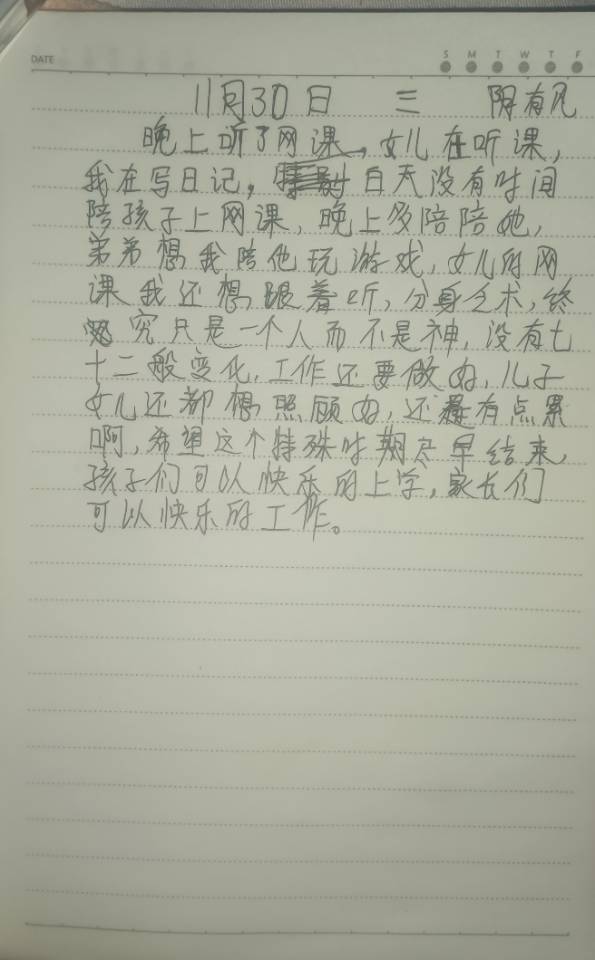 DATE
S M T W T F
11月30日 三 阴有风
晚上听了网课，女儿在听课，
我在写日记，白天没有时间
陪孩子上网课，晚上多陪陪她，
弟弟想我陪他玩游戏，女儿的网
课我还想跟着听，分身乏术，终
究只是一个人而不是神，没有七
十二般变化，工作还要做的，儿子
女儿还都想照顾的，还是有点累
啊，希望这个特殊时期尽早结束，
孩子们可以快乐的上学，家长们
可以快乐的工作。